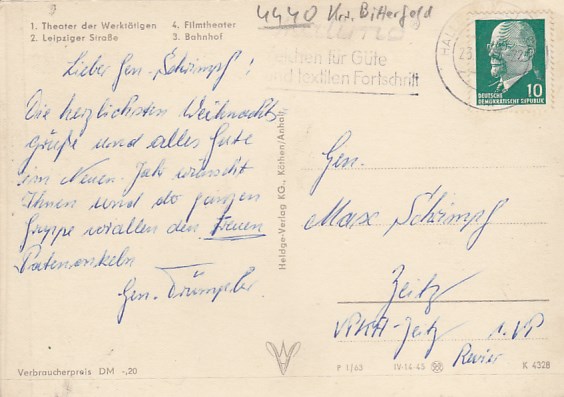 1. Theater der Werktätigen 4. Filmtheater
2. Leipziger Straße 3. Bahnhof
4440 Krs. Bitterfeld
chen für Güte
d textilen Fortschritt
10
DEUTSCHE
DEMOKRATISCHE REPUBLIK
Lieber Gen. Schrimpf!
Die herzlichsten Weihnachts-
grüße und alles Gute
im Neuen Jahr wünscht
Ihnen und der ganzen
Gruppe vor allen den
Patenonkeln
Gen. Trümpler
Heldge-Verlag KG., Köthen/Anhalt
Gen.
Max Schrimpf
Zeitz
VPKA-Zeitz 1. VP
Revier
Verbraucherpreis DM -,20
P 1/63 IV-14-45 K 4328